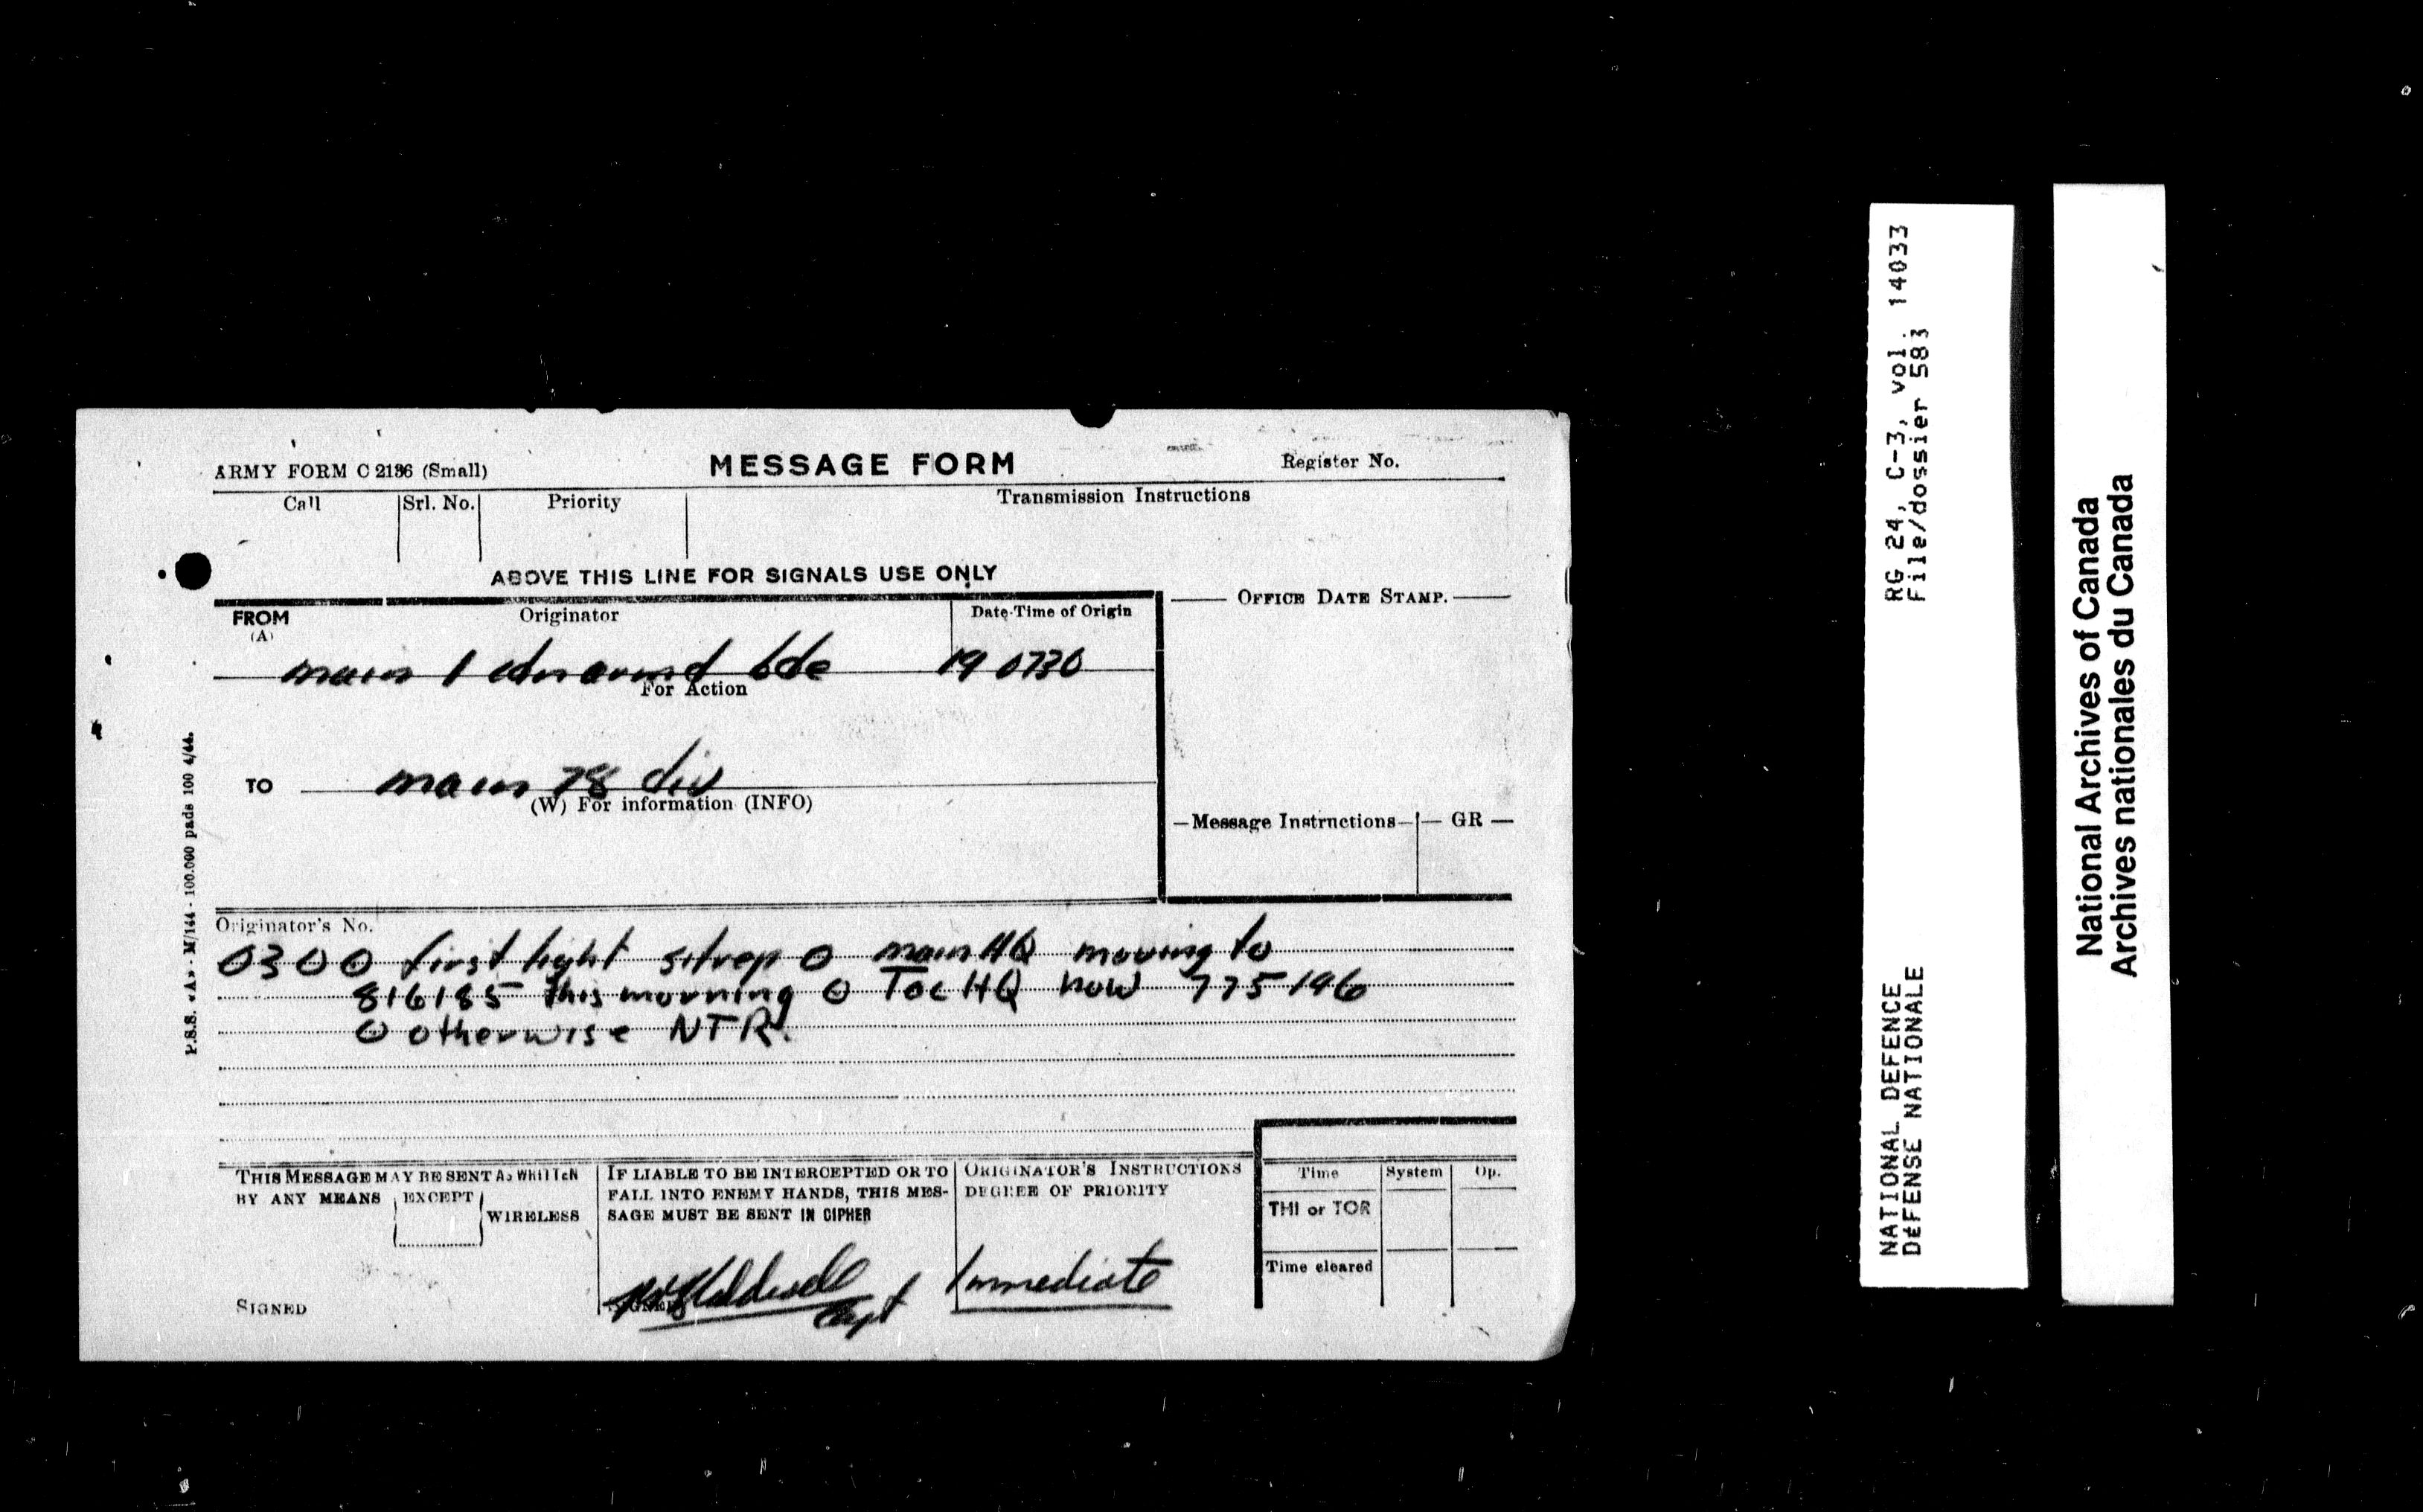 ARMY FORM C 2136 (Small)
MESSAGE FORM
Register No.
Call
Srl. No.
Priority
Transmission Instructions
ABOVE THIS LINE FOR SIGNALS USE ONLY
FROM
(A)
Originator
Date-Time of Origin
OFFICE DATE STAMP.
main 1 cdn armd bde
19 0730
For Action
TO
main 78 div
(W) For information (INFO)
Message Instructions
GR
Originator's No.
0300 first light sitrep 0 main HQ moving to
816185 this morning 0 Tac HQ now 775196
0 otherwise NTR.
THIS MESSAGE MAY BE SENT AS WRITTEN
BY ANY MEANS EXCEPT
WIRELESS
SIGNED
IF LIABLE TO BE INTERCEPTED OR TO
FALL INTO ENEMY HANDS, THIS MES-
SAGE MUST BE SENT IN CIPHER
SIGNED
Capt
ORIGINATOR'S INSTRUCTIONS
DEGREE OF PRIORITY
Immediate
Time
System
Op.
THI or TOR
Time cleared
P.S.S. «A» - M/144 - 100.000 pads 100 4/44.
RG 24, C-3, vol. 14033
File/dossier 583
NATIONAL DEFENCE
DÉFENSE NATIONALE
National Archives of Canada
Archives nationales du Canada